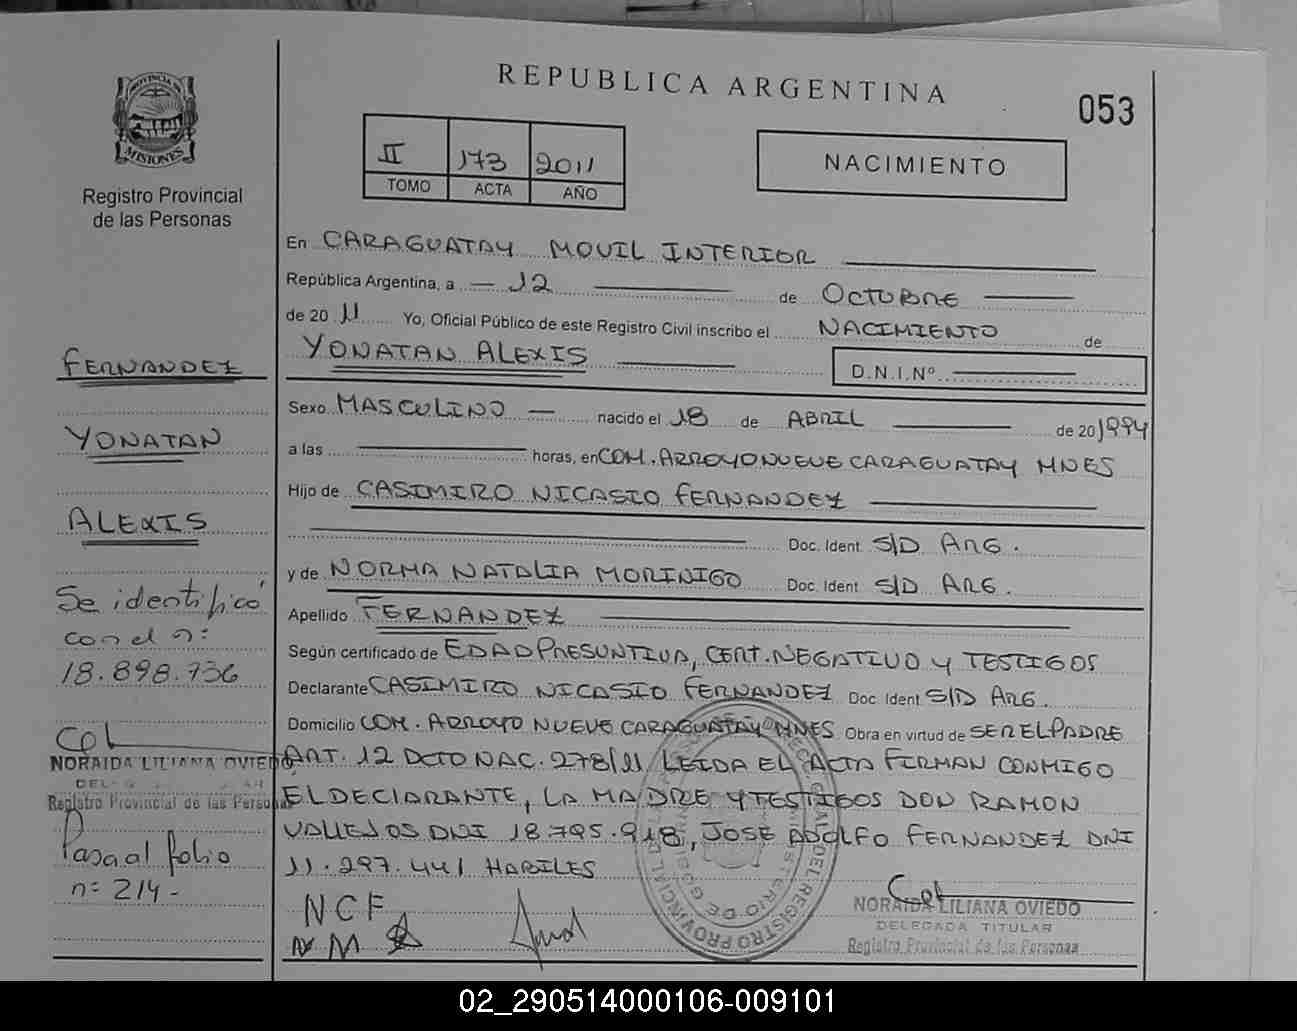 REPUBLICA ARGENTINA
053
PROVINCIA DE
MISIONES
Registro Provincial
de las Personas
II 173 2011
TOMO ACTA AÑO
NACIMIENTO
En CARAGUATAY MOVIL INTERIOR
República Argentina, a 12 de OCTUBRE
de 20 11 Yo, Oficial Público de este Registro Civil inscribo el NACIMIENTO de
YONATAN ALEXIS
D.N.I.Nº
Sexo MASCULINO nacido el 18 de ABRIL de 20 1994
a las horas, en COM. ARROYO NUEVE CARAGUATAY MNES
Hijo de CASIMIRO NICASIO FERNANDEZ
Doc. Ident. S/D ARG.
y de NORMA NATALIA MORINIGO Doc. Ident. S/D ARG.
Apellido FERNANDEZ
Según certificado de EDAD PRESUNTIVA, CERT. NEGATIVO Y TESTIGOS
Declarante CASIMIRO NICASIO FERNANDEZ Doc. Ident S/D ARG.
Domicilio COM. ARROYO NUEVE CARAGUATAY MNES Obra en virtud de SER EL PADRE
ART. 12 DCTO NAC. 278/11 LEIDA EL ACTA FIRMAN CONMIGO
EL DECLARANTE, LA MADRE Y TESTIGOS DON RAMON
VALLEJOS DNI 18.795.918, JOSE ADOLFO FERNANDEZ DNI
11.297.441 HABILES
NCF
N M
NORAIDA LILIANA OVIEDO
DELEGADA TITULAR
Registro Provincial de las Personas
FERNANDEZ
YONATAN
ALEXIS
Se identificó
con el n:
18.898.736
NORAIDA LILIANA OVIEDO
Registro Provincial de las Personas
Pasa al folio
n: 214-
02_290514000106-009101